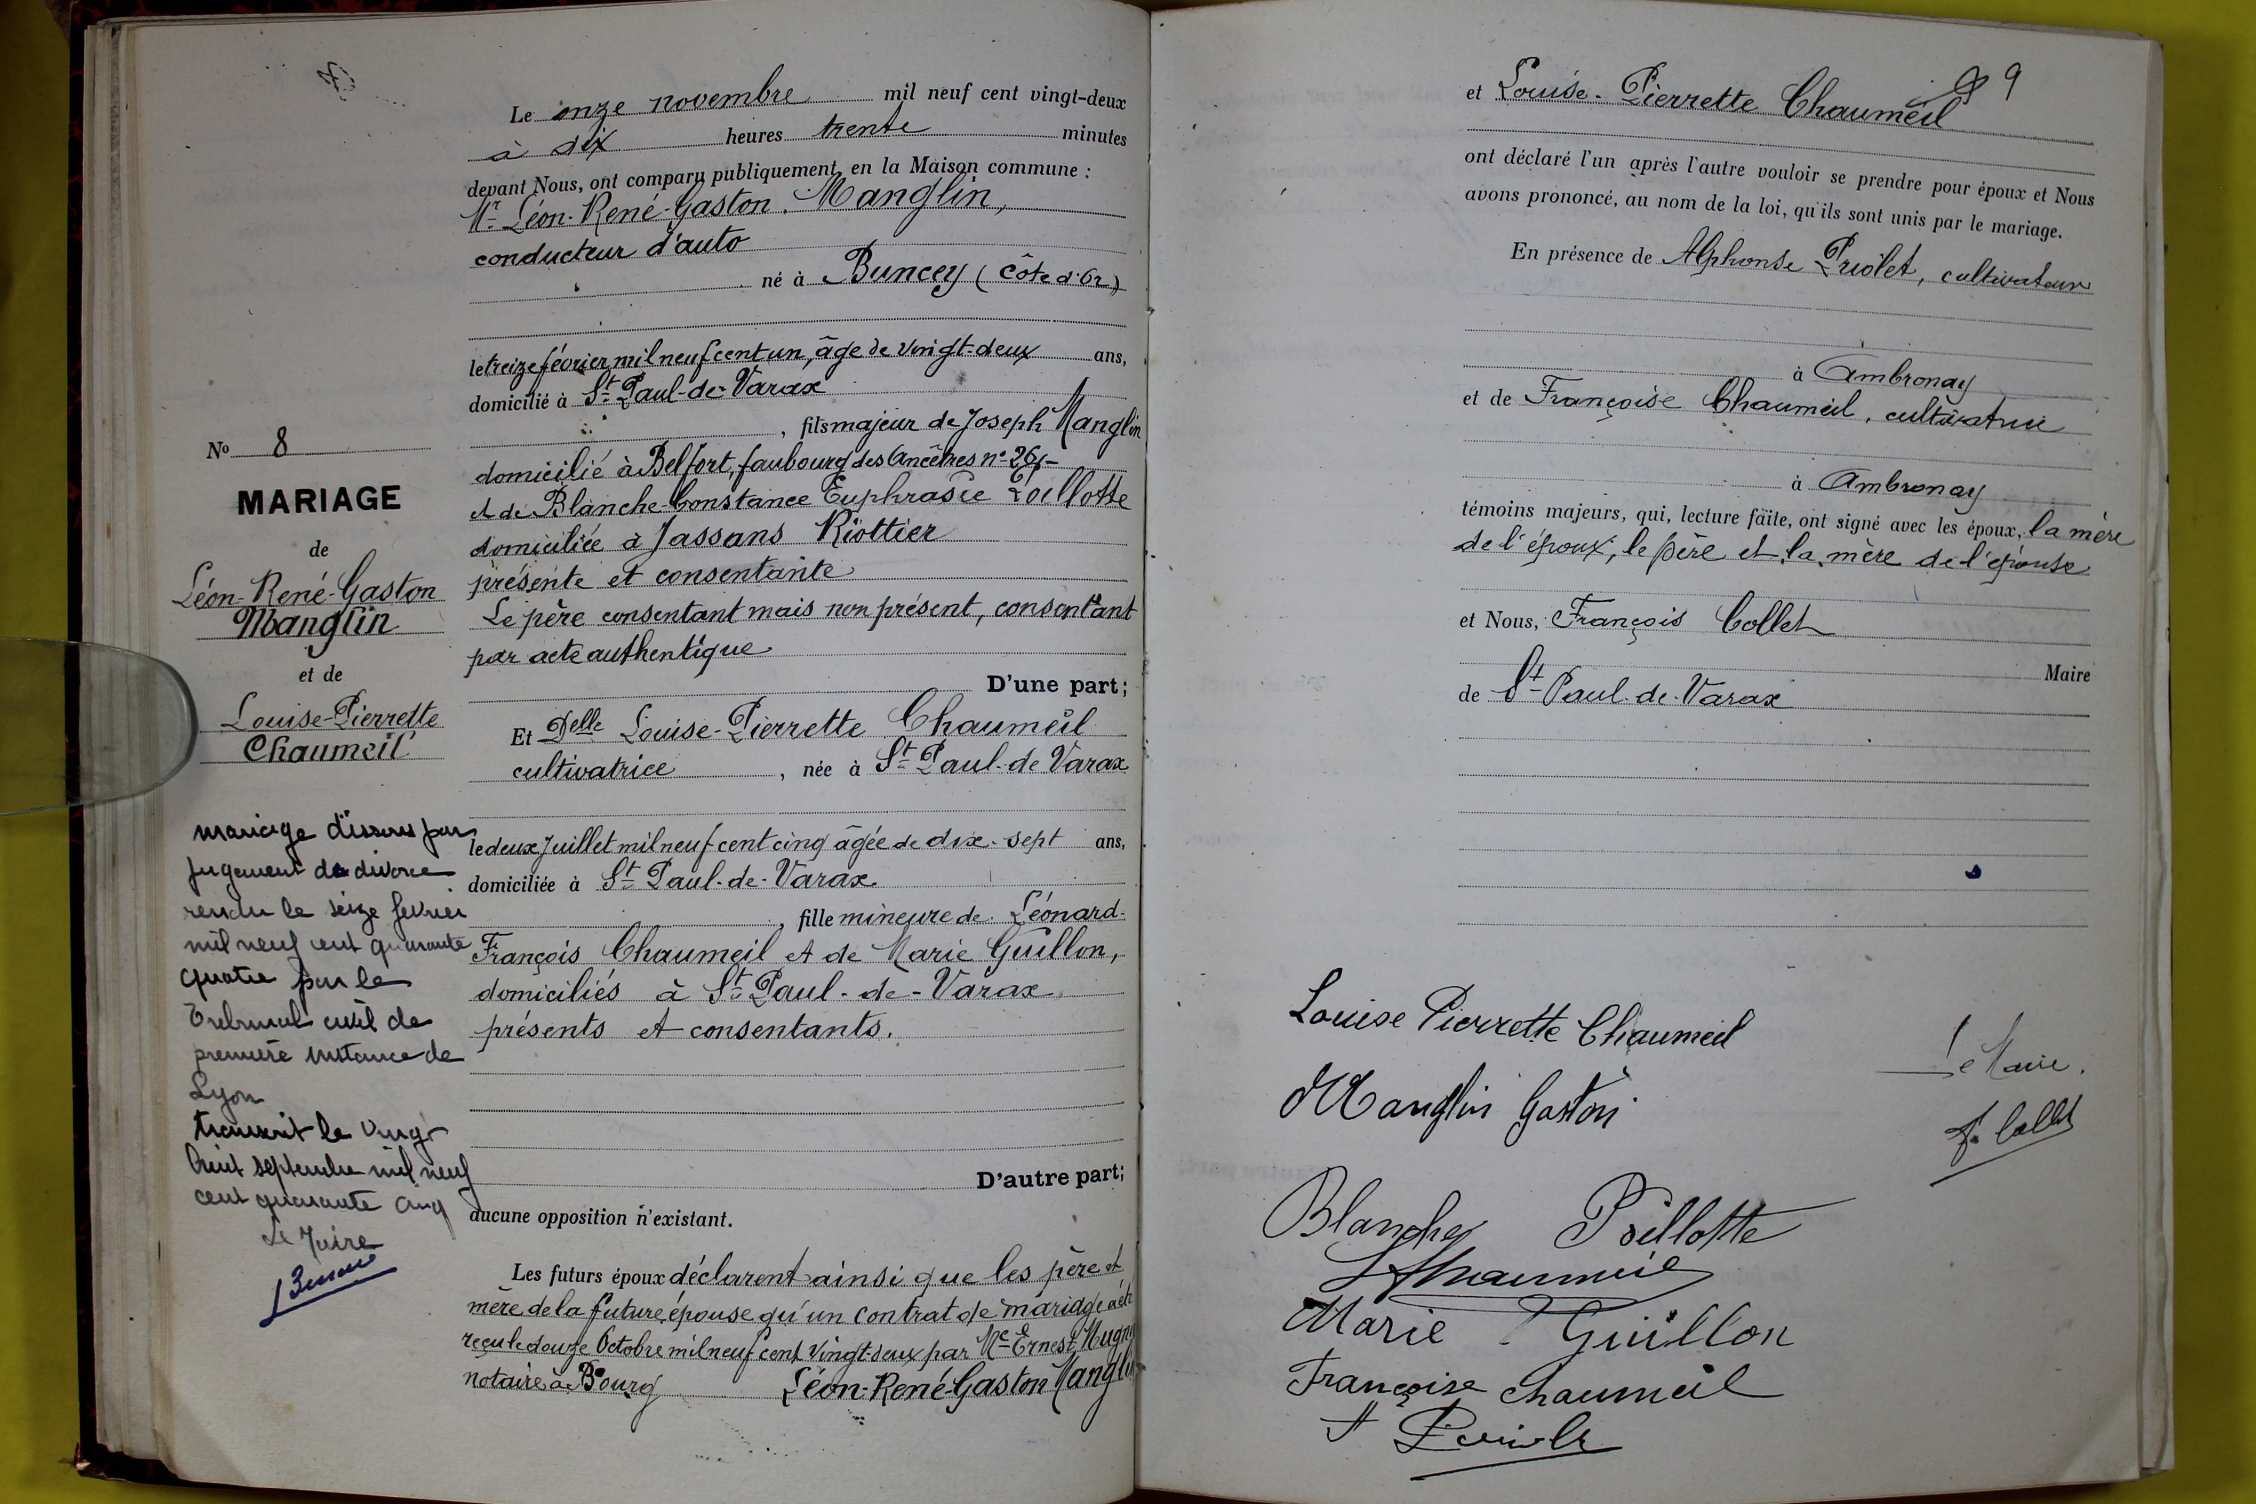 Le onze novembre mil neuf cent vingt-deux
à dix heures trente minutes
devant Nous, ont comparu publiquement, en la Maison commune :
Mr Léon-René-Gaston Manglin,
conducteur d'auto
né à Buncey (Côte d'Or)
le treize février mil neuf cent un, âge de vingt-deux ans,
domicilié à St Paul-de-Varax
, fils majeur de Joseph Manglin
domicilié à Belfort, faubourg des Ancêtres n°
et de Blanche-Constance Euphrasie Poillotte
domiciliée à Jassans Riottier
présente et consentante
Le père consentant mais non présent, consentant
par acte authentique
D'une part;
Et Delle Louise-Pierrette Chaumeil
cultivatrice , née à St Paul-de Varax
le deux Juillet mil neuf cent cinq âgée de dix-sept ans,
domiciliée à St Paul-de-Varax
, fille mineure de Léonard-
François Chaumeil et de Marie Guillon,
domiciliés à St Paul-de-Varax
présents et consentants.
D'autre part;
aucune opposition n'existant.
Les futurs époux déclarent ainsi que les père et
mère de la future épouse qu'un contrat de mariage a été
reçu le douze Octobre mil neuf cent vingt-deux par Me Ernest
notaire à Bourg Léon-René-Gaston Manglin
No 8
MARIAGE
de
Léon-René-Gaston
Manglin
et de
Louise-Pierrette
Chaumeil
mariage dissous par
jugement de divorce
rendu le seize fevrier
mil neuf cent quarante
quatre par le
Tribunal civil de
première instance de
Lyon
transcrit le vingt
huit septembre mil neuf
cent quarante cinq
Le Maire
9
et Louise-Pierrette Chaumeil
ont déclaré l'un après l'autre vouloir se prendre pour époux et Nous
avons prononcé, au nom de la loi, qu'ils sont unis par le mariage.
En présence de Alphonse Priolet, cultivateur
à Ambronay
et de Françoise Chaumeil, cultivatrice
à Ambronay
témoins majeurs, qui, lecture faite, ont signé avec les époux, la mère
de l'époux, le père et la mère de l'épouse
et Nous, François Collet
Maire
de St Paul-de-Varax
Louise Pierrette Chaumeil
Manglin Gaston
Le Maire.
F. Collet
Blanche Poillotte
Chaumeil
Marie Guillon
Françoise Chaumeil